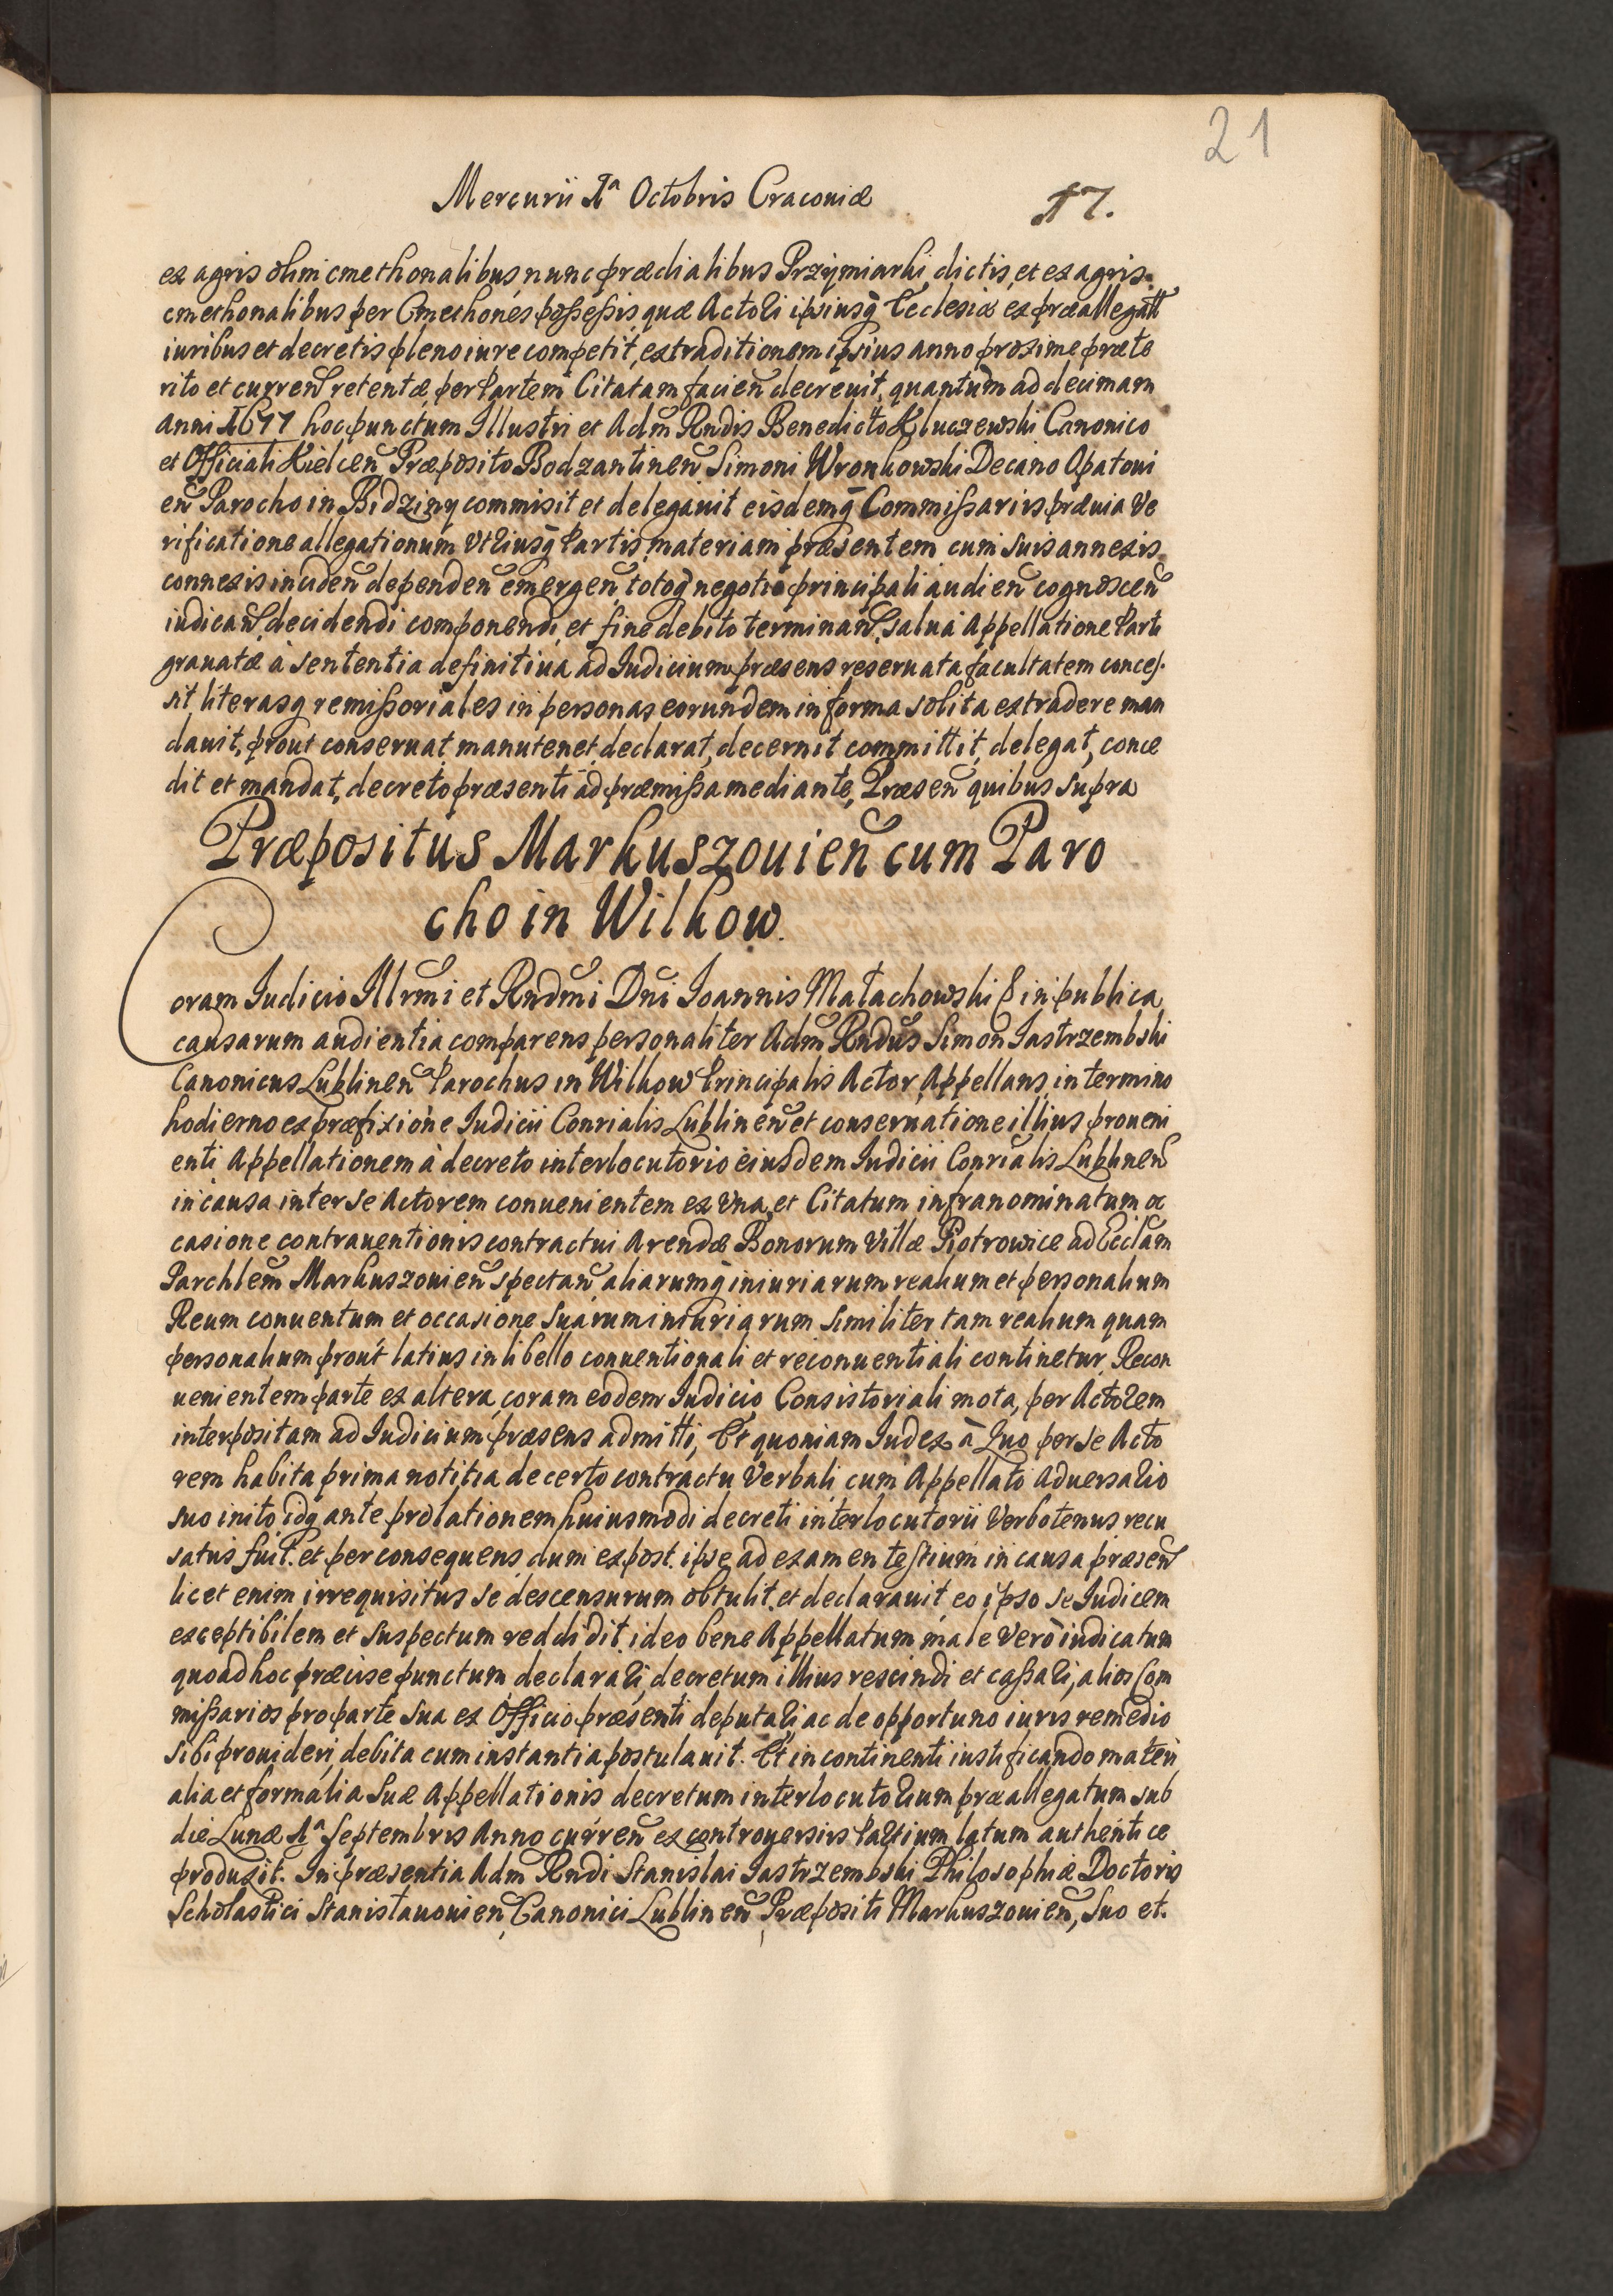 21
Mercurii 1ª Octobris Cracouiæ
17.
ex agris olim cmethonalibus, nunc prædialibus Przymiarki dictis, et ex agris
cmethonalibus per Cmethones possessis, quæ Actori ipsiusq̄ Ecclesiæ ex præallegatt
iuribus et decretis pleno iure competit, extraditionem ipsius anno proxime præte
rito et curren̄ retentæ per Partem Citatam facien̄ decreuit, quantum ad decimam
Anni 1677 hoc punctum Illustri et Adm̄ Rndis Benedicto Kluczewski Canonico
et Officiali Kielcen̄ Præposito Bodzantinen̄ Simoni Wronkowski Decano Opatoui
en̄ Parocho in Bidziny commisit et delegauit eisdemq̄ Commissariis præuia Ve
rificatione allegationum Vtriusq̄ Partis, materiam præsentem cum suis annexis
connexis inciden̄ dependen̄ emergen̄ totoq̄ negotio principali audien̄ cognoscen̄
iudican̄, decidendi componendi, et fine debito terminan̄, salua Appellatione Parti
grauatæ à sententia definitiua ad Iudicium præsens reseruata facultatem conces
sit literasq̄ remissoriales in personas eorundem in forma solita extradere man
dauit, prout conseruat manutenet, declarat, decernit committit, delegat, conce
dit et mandat, decreto præsenti ad præmissa mediante, Præsen̄ quibus supra
Præpositus Markuszouien̄ cum Paro
cho in Wilkow.
Coram Iudicio Illrmi et Rndmi Dni Ioannis Małachowski & in publica
causarum audientia comparens personaliter Adm̄ Rndus Simon Iastrzembski
Canonicus Lublinen̄ Parochus in Wilkow Principalis Actor, Appellans, in termino
hodierno ex præfixione Iudicii Conrialis Lublinen̄ et conseruatione illius proueni
enti Appellationem à decreto interlocutorio eiusdem Iudicii Conrialis Lublinen̄
in causa inter se Actorem conuenientem ex Vna, et Citatum infranominatum oc
casione contrauentionis contractui Arendæ Bonorum Villæ Piotrowice ad Ecclam
Parchlem̄ Markuszouien̄ spectan̄, aliarumq̄ iniuriarum realium et personalium
Reum conuentum et occasione suarum iniuriarum similiter tam realium quam
personalium prout latius in libello conuentionali et reconuentiali continetur, Recon
uenientem parte ex altera, coram eodem Iudicio Consistoriali mota, per Actorem
interpositam ad Iudicium præsens admitti, Et quoniam Iudex à Quo per se Acto
rem habita prima notitia de certo contractu Verbali, cum Appellato Aduersario
suo inito, idq̄ ante prolationem huiusmodi decreti interlocutorii Verbotenus recu
satus fuit, et per consequens, dum ex post ipse ad examen testium in causa præsen̄
licet enim irrequisitus se descensurum obtulit, et declarauit, eo ipso se Iudicem
exceptibilem et suspectum reddidit, ideo bene Appellatum male Verò iudicatum
quoad hoc præcise punctum declarari, decretum illius rescindi et cassari, alios Com
missarios pro parte sua ex Officio præsenti deputari, ac de opportuno iuris remedio
sibi prouideri, debita cum instantia postulauit. Et in continenti iustificando materi
alia et formalia suæ Appellationis decretum interlocutorium præallegatum sub
die Lunæ 1ª Septembris Anno curren̄ ex controuersiis Partium latum authentice
produxit. In præsentia Adm̄ Rndi Stanislai Iastrzembski Philosophiæ Doctoris
Scholastici Stanisłauouien̄, Canonici Lublinen̄ Præpositi Markuszouien̄, Suo et